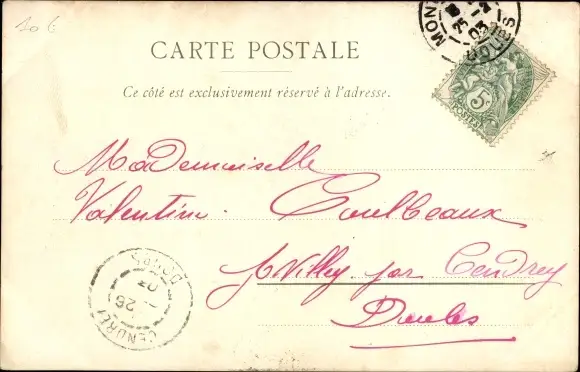 10 €
MON
25 - 2
03
DOUBS
5c
POSTES
CARTE POSTALE
Ce côté est exclusivement réservé à l'adresse.
Mademoiselle
Valentine Coulbeaux
par Cendrey
Doubs
CENDREY
26
03
DOUBS